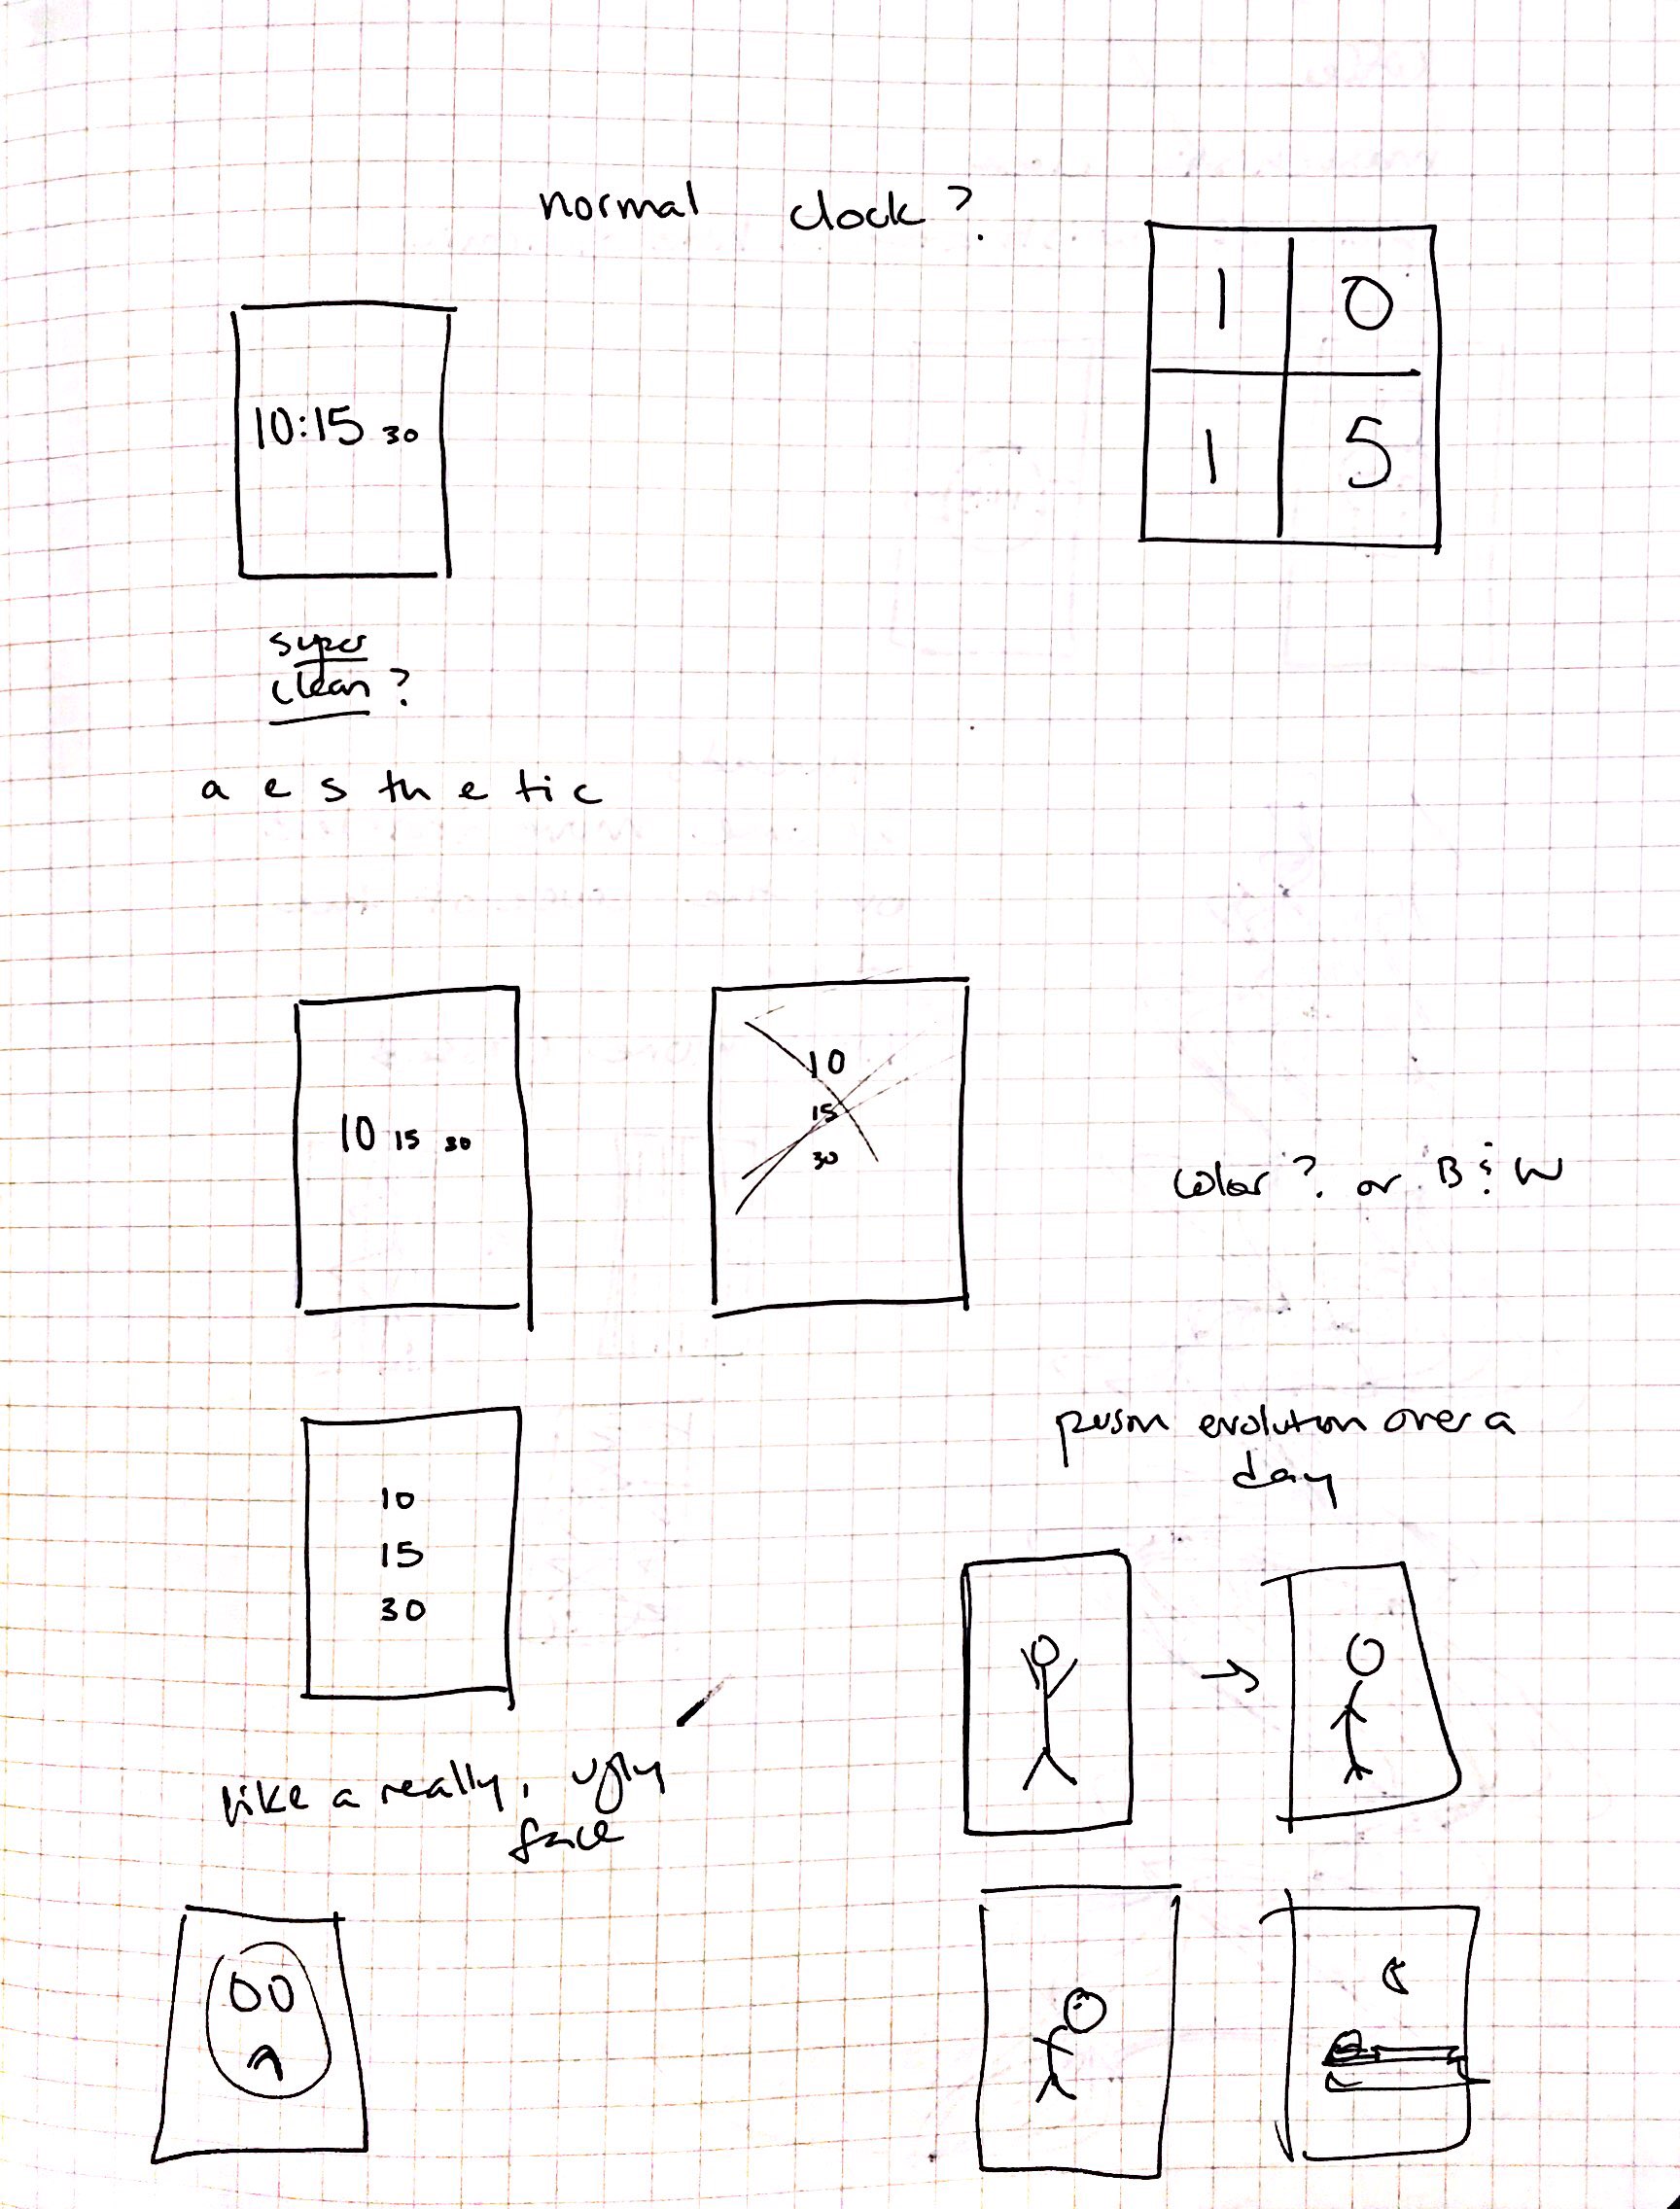 normal clock?
1 0
10:15 30
1 5
super
clean?
a e s th e tic
10 15 30
10
15
30
color? or B & W
person evolution over a
day
10
15
30
like a really, ugly
face